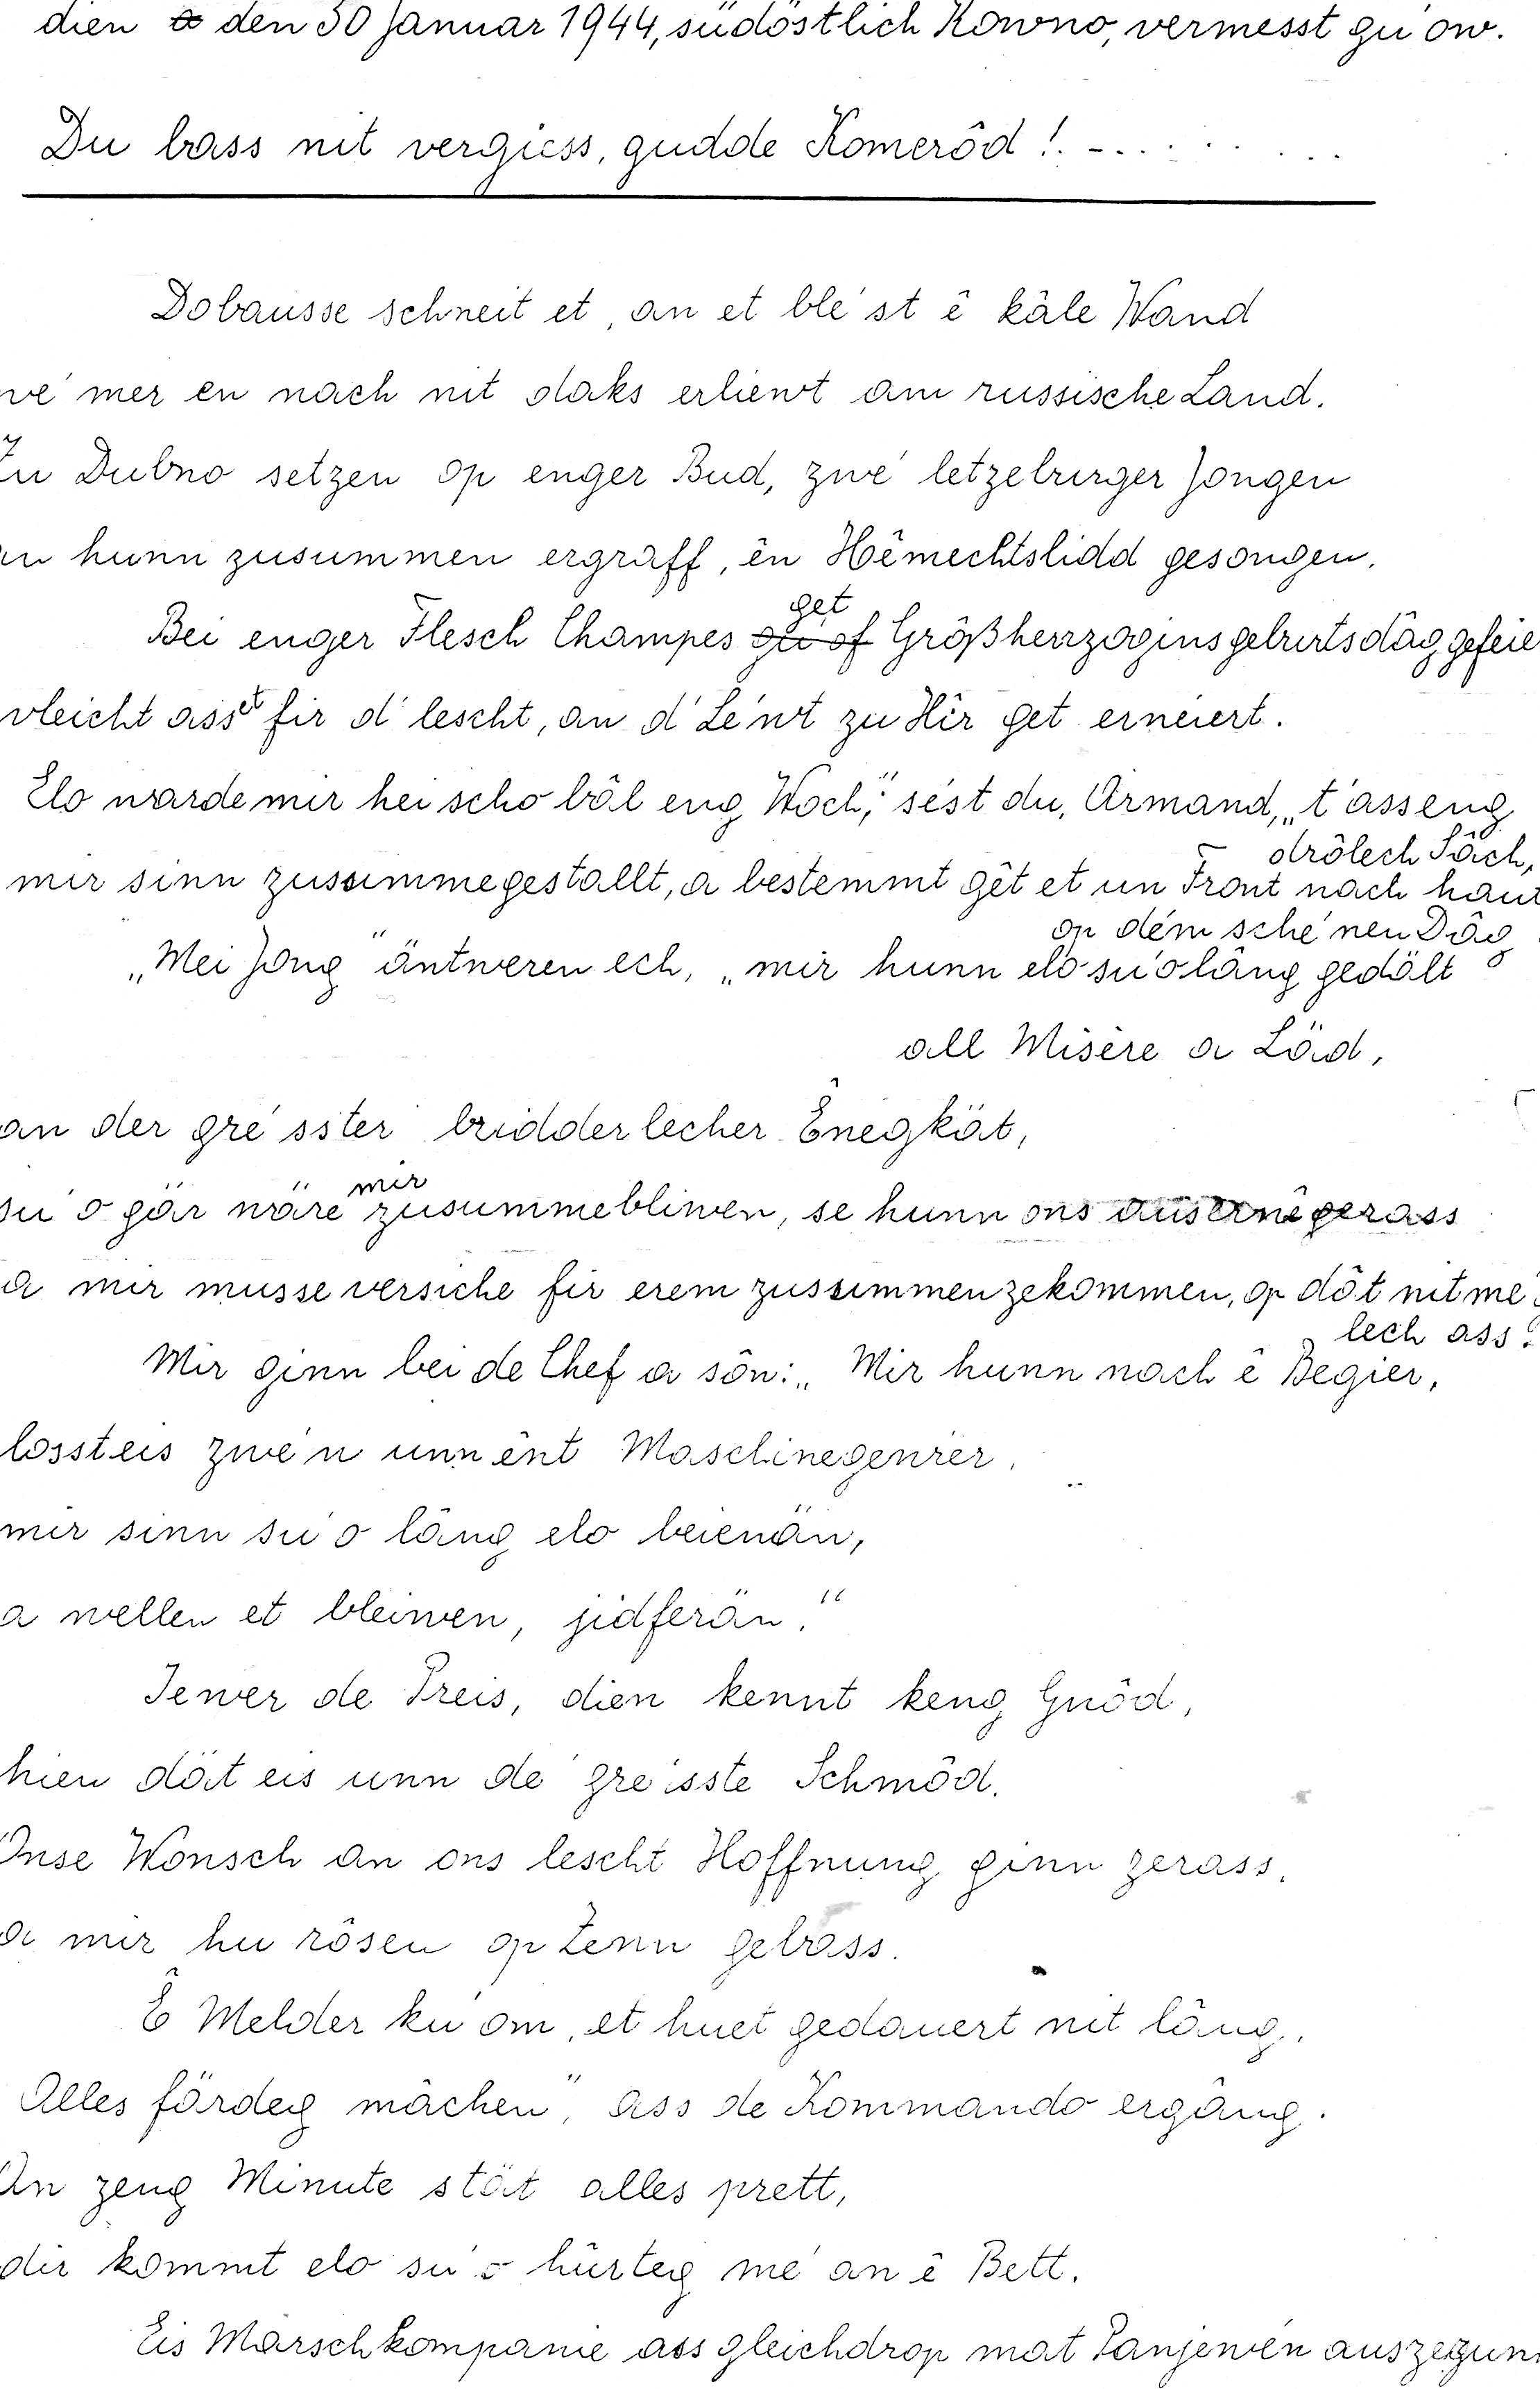 dien a den 30 Januar 1944, südöstlich Kowno, vermesst gu'ow.
Du bass nit vergiess, gudde Komerôd! - . . . . . . . .
Dobausse schneit et, an et ble'st ê kâle Wand
we' mer en nach nit daks erliewt am russische Land.
Zu Dubno setzen op enger Bud, zwe' letzeburger Jongen
an hunn zusummen ergraff, ên Hêmechtslidd gesongen.
get
Bei enger Flesch Champes gu'of Größherrzoginsgeburtsdâg gefeie
vleicht ass't fir d'lescht, an d'Le'wt zu Hîr get erneiert.
Elo warde mir hei scho bâl eng Woch," sést du, Armand, „t'ass eng
drôlech Sâch,
mir sinn zusummegestallt, a bestemmt gêt et un Front nach haut
op dém sche'nen Dâg
„Mei Jong" äntweren ech, „mir hunn elo su'o lâng gedêlt
all Misère a Läd,
an der gre'sster bridderlecher Ênegkät,
mir
su'o gär wäre zusummebliwen, se hunn ons auserne gerass
a mir musse versiche fir erem zussummenzekommen, op dât nit me'g
lech ass."
Mir ginn bei de Chef a sôn: „Mir hunn nach ê Begier,
losst eis zwe'n unn ent Maschinegewier,
mir sinn su'o lâng elo beienän,
a wellen et bleiwen, jidferän."
Iewer de Preis, dien kennt keng Gnôd,
hien dät eis unn de gre'isste Schmôd.
Onse Wonsch an ons lescht Hoffnung ginn zerass,
a mir hu rôsen op Zenn gebass.
Ê Melder ku'om, et huet gedauert nit lâng,
Alles färdeg mâchen", ass de Kommando ergâng.
An zeng Minute stät alles prett,
dir kommt elo su'o hürteg me' an ê Bett.
Eis Marschkompanie ass gleichdrop mat Panjewen auszegun